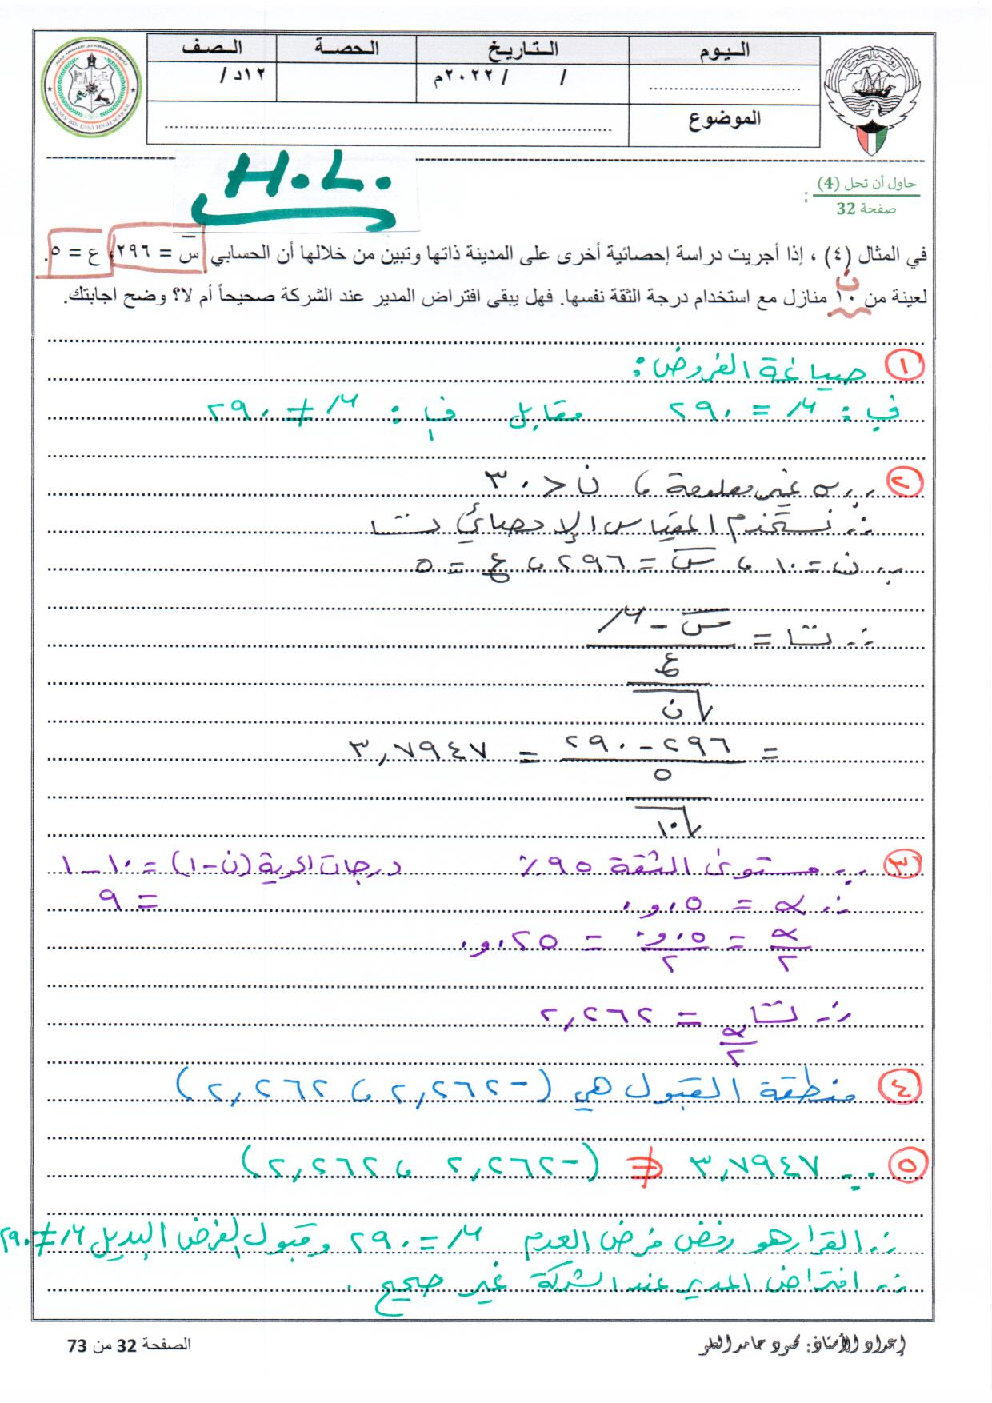 اليوم التاريخ الحصة الصف
/ / ٢٠٢٢م ١٢د /
الموضوع
H.L.
حاول أن تحل (4) :
صفحة 32
في المثال (٤) ، إذا أجريت دراسة إحصائية أخرى على المدينة ذاتها وتبين من خلالها أن الحسابي س̄ = ٢٩٦ ، ع = ٥ .
ن
لعينة من ١٠ منازل مع استخدام درجة الثقة نفسها. فهل يبقى افتراض المدير عند الشركة صحيحاً أم لا؟ وضح اجابتك.
١ صياغة الفروض :
ف. : μ = ٢٩٠ مقابل ف١ : μ ≠ ٢٩٠
٢ ∵ σ غير معلومة ، ن < ٣٠
∴ نستخدم المقياس الإحصائي ت
∵ ن = ١٠ ، س̄ = ٢٩٦ ، ع = ٥
∴ ت = (س̄ - μ) / (ع / √ن)
= (٢٩٦ - ٢٩٠) / (٥ / √١٠) = ٣,٧٩٤٧
٣ ∵ مستوى الثقة ٩٥٪ درجات الحرية (ن-١) = ١٠-١
∴ α = ٠,٠٥ = ٩
α/٢ = ٠,٠٥/٢ = ٠,٠٢٥
∴ ت α/٢ = ٢,٢٦٢
٤ منطقة القبول هي (-٢,٢٦٢ ، ٢,٢٦٢)
٥ ∵ ٣,٧٩٤٧ ∉ (-٢,٢٦٢ ، ٢,٢٦٢)
∴ القرار هو رفض فرض العدم μ = ٢٩٠ وقبول الفرض البديل μ ≠ ٢٩٠
∴ افتراض المدير عند الشركة غير صحيح .
إعداد الأستاذ: محمود حامد
الصفحة 32 من 73